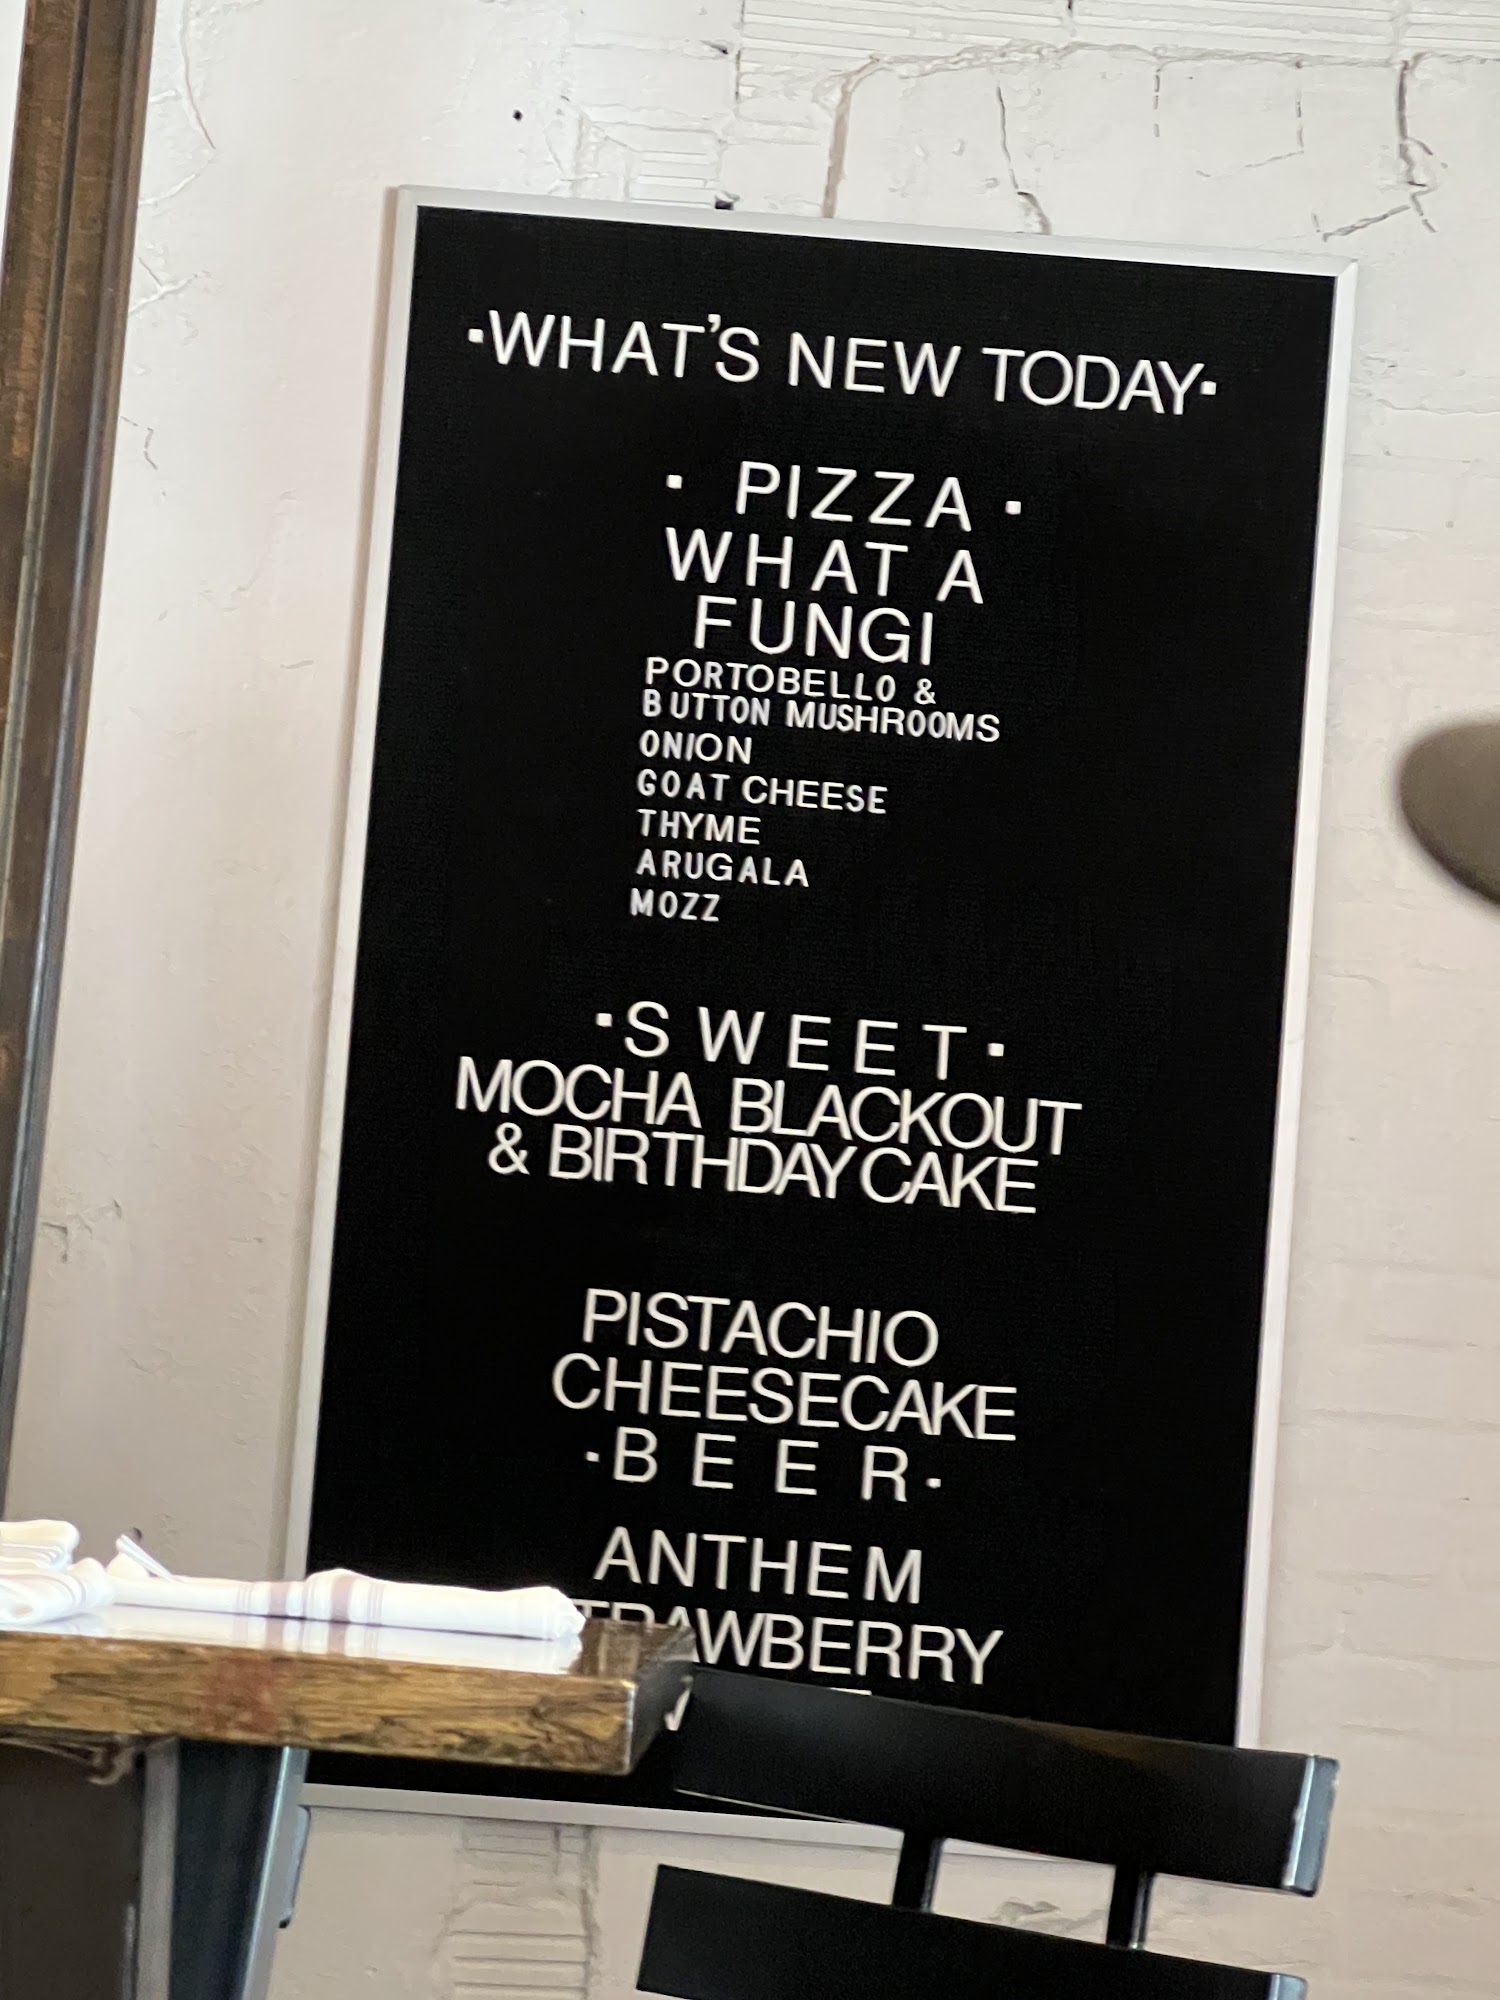 ·WHAT'S NEW TODAY·
· PIZZA ·
WHAT A
FUNGI
PORTOBELLO &
BUTTON MUSHROOMS
ONION
GOAT CHEESE
THYME
ARUGALA
MOZZ
·SWEET·
MOCHA BLACKOUT
& BIRTHDAY CAKE
PISTACHIO
CHEESECAKE
·BEER·
ANTHEM
STRAWBERRY